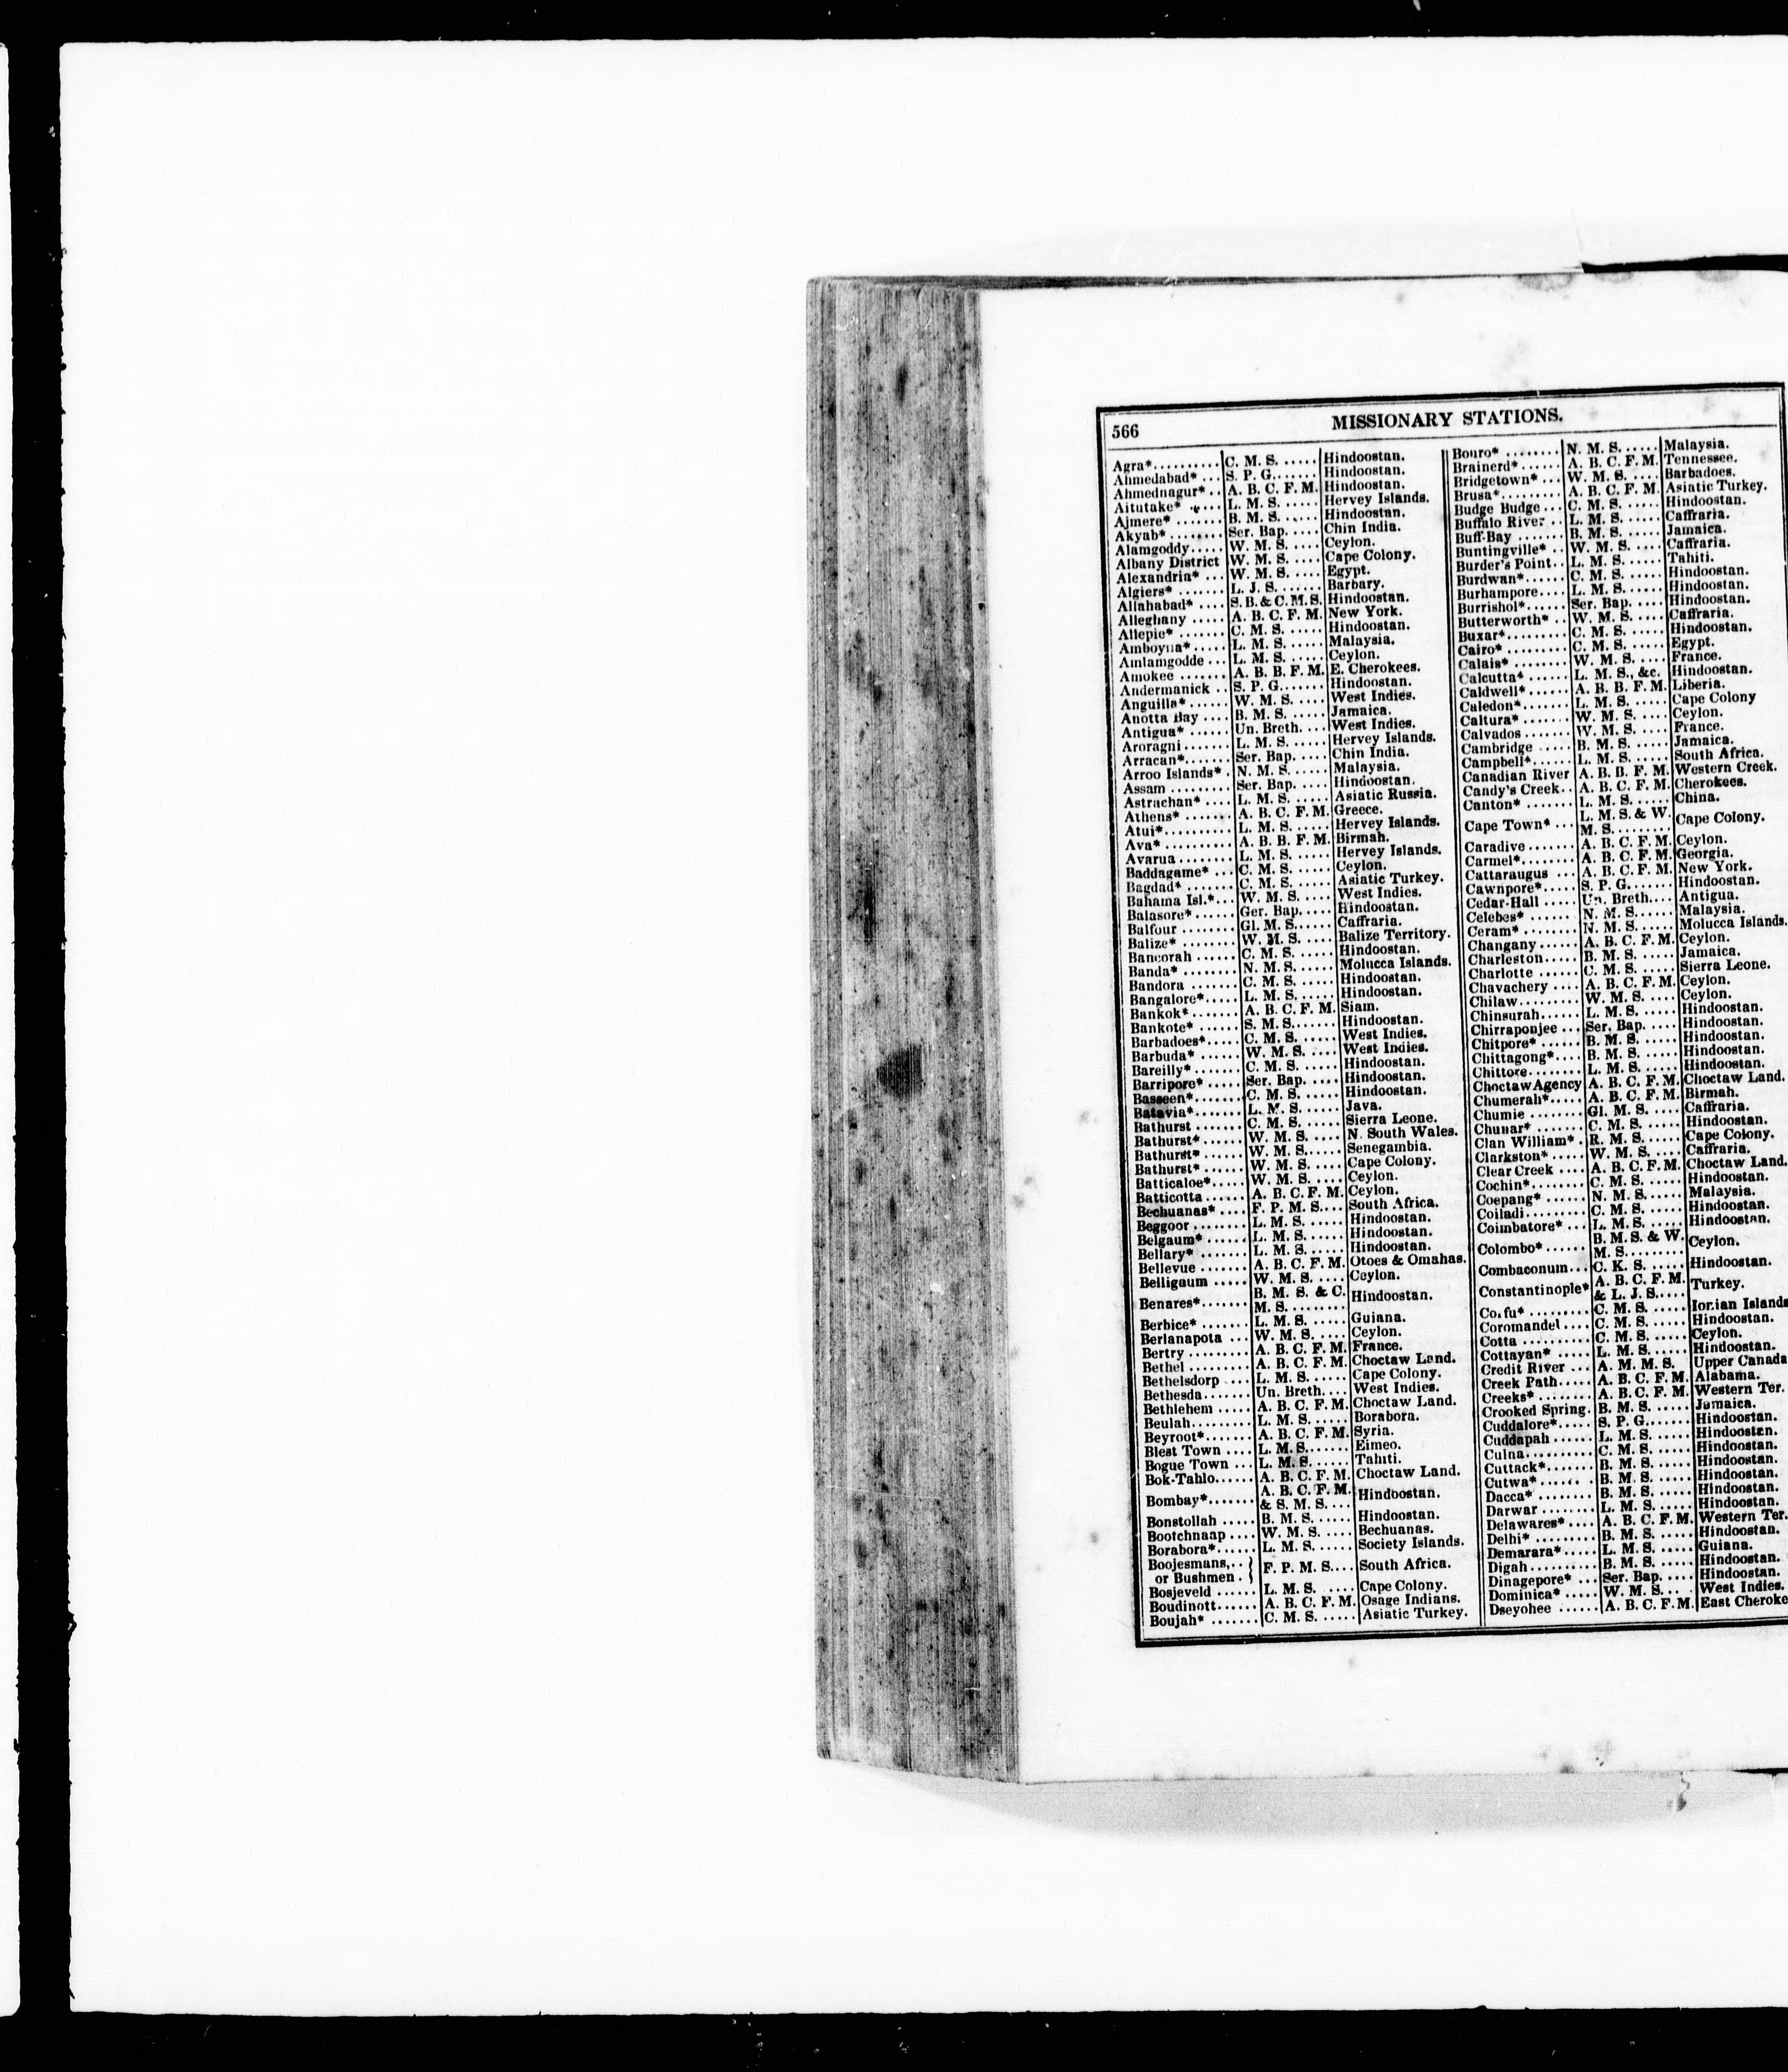 566
MISSIONARY STATIONS.
Agra*.......... C. M. S. ..... Hindoostan.
Ahmedabad* ... S. P. G....... Hindoostan.
Ahmednagur* .. A. B. C. F. M. Hindoostan.
Aitutake* ..... L. M. S. ..... Hervey Islands.
Ajmere* ....... B. M. S. ..... Hindoostan.
Akyab* ........ Ser. Bap. .... Chin India.
Alamgoddy..... W. M. S. .... Ceylon.
Albany District W. M. S. .... Cape Colony.
Alexandria* ... W. M. S. .... Egypt.
Algiers* ....... L. J. S. ...... Barbary.
Allahabad* .... S. B. & C. M. S. Hindoostan.
Alleghany ..... A. B. C. F. M. New York.
Allepie* ....... C. M. S. ...... Hindoostan.
Amboyna*..... L. M. S. ...... Malaysia.
Amlamgodde ... L. M. S. ..... Ceylon.
Amokee ....... A. B. B. F. M. E. Cherokees.
Andermanick .. S. P. G....... Hindoostan.
Anguilla* ...... W. M. S. ..... West Indies.
Anotta Bay .... B. M. S. ..... Jamaica.
Antigua* ...... Un. Breth. ... West Indies.
Aroragni ....... L. M. S. ..... Hervey Islands.
Arracan*....... Ser. Bap. .... Chin India.
Arroo Islands* . N. M. S. ..... Malaysia.
Assam ......... Ser. Bap. .... Hindoostan.
Astrachan* .... L. M. S. ..... Asiatic Russia.
Athens* ....... A. B. C. F. M. Greece.
Atui*.......... L. M. S. ...... Hervey Islands.
Ava* .......... A. B. B. F. M. Birmah.
Avarua ........ L. M. S. ...... Hervey Islands.
Baddagame* ... C. M. S. ...... Ceylon.
Bagdad* ....... C. M. S. ...... Asiatic Turkey.
Bahama Isl.*... W. M. S. ..... West Indies.
Balasore* ...... Ger. Bap. .... Hindoostan.
Balfour ........ Gl. M. S. ..... Caffraria.
Balize* ........ W. M. S. ..... Balize Territory.
Bancorah ...... C. M. S. ...... Hindoostan.
Banda* ........ N. M. S. ..... Molucca Islands.
Bandora ....... C. M. S. ...... Hindoostan.
Bangalore*..... L. M. S. ...... Hindoostan.
Bankok* ....... A. B. C. F. M. Siam.
Bankote* ...... S. M. S....... Hindoostan.
Barbadoes*..... C. M. S. ..... West Indies.
Barbuda* ...... W. M. S. .... West Indies.
Bareilly* ....... C. M. S. ...... Hindoostan.
Barripore* ..... Ser. Bap. ..... Hindoostan.
Basseen*....... C. M. S. ...... Hindoostan.
Batavia*....... L. M. S. ...... Java.
Bathurst ....... C. M. S. ...... Sierra Leone.
Bathurst* ...... W. M. S. ..... N. South Wales.
Bathurst* ...... W. M. S...... Senegambia.
Bathurst* ...... W. M. S. .... Cape Colony.
Batticaloe*..... W. M. S. .... Ceylon.
Batticotta ...... A. B. C. F. M. Ceylon.
Bechuanas* .... F. P. M. S.... South Africa.
Beggoor ........ L. M. S. ...... Hindoostan.
Belgaum* ...... L. M. S. ...... Hindoostan.
Bellary* ....... L. M. S. ...... Hindoostan.
Bellevue ....... A. B. C. F. M. Otoes & Omahas.
Belligaum ..... W. M. S. .... Ceylon.
Benares*....... B. M. S. & C. M. S. ......... Hindoostan.
Berbice* ....... L. M. S. ...... Guiana.
Berlanapota ... W. M. S. .... Ceylon.
Bertry ......... A. B. C. F. M. France.
Bethel ......... A. B. C. F. M. Choctaw Land.
Bethelsdorp .... L. M. S. ...... Cape Colony.
Bethesda ....... Un. Breth. ... West Indies.
Bethlehem ..... A. B. C. F. M. Choctaw Land.
Beulah......... L. M. S. ...... Borabora.
Beyroot*....... A. B. C. F. M. Syria.
Blest Town .... L. M. S....... Eimeo.
Bogue Town ... L. M. S. ...... Tahiti.
Bok-Tahlo...... A. B. C. F. M. Choctaw Land.
Bombay*....... A. B. C. F. M. & S. M. S. ... Hindoostan.
Bonstollah ..... B. M. S. ...... Hindoostan.
Bootchnaap .... W. M. S. .... Bechuanas.
Borabora*...... L. M. S. ...... Society Islands.
Boojesmans, ..
or Bushmen . } F. P. M. S.... South Africa.
Bosjeveld ...... L. M. S. .... Cape Colony.
Boudinott...... A. B. C. F. M. Osage Indians.
Boujah* ....... C. M. S. ..... Asiatic Turkey.
Bouro* ........ N. M. S. ..... Malaysia.
Brainerd* ...... A. B. C. F. M. Tennessee.
Bridgetown* ... W. M. S. .... Barbadoes.
Brusa*......... A. B. C. F. M. Asiatic Turkey.
Budge Budge ... C. M. S. ..... Hindoostan.
Buffalo River .. L. M. S. ...... Caffraria.
Buff-Bay ....... B. M. S. ...... Jamaica.
Buntingville* .. W. M. S. .... Caffraria.
Burder's Point.. L. M. S. ..... Tahiti.
Burdwan*...... C. M. S. ...... Hindoostan.
Burhampore.... L. M. S. ...... Hindoostan.
Burrishol*...... Ser. Bap. .... Hindoostan.
Butterworth* .. W. M. S. .... Caffraria.
Buxar*......... C. M. S. ...... Hindoostan.
Cairo* ......... C. M. S. ...... Egypt.
Calais* ........ W. M. S. .... France.
Calcutta* ...... L. M. S., &c. Hindoostan.
Caldwell* ...... A. B. B. F. M. Liberia.
Caledon*....... L. M. S. ..... Cape Colony
Caltura* ....... W. M. S. .... Ceylon.
Calvados ....... W. M. S. .... France.
Cambridge ..... B. M. S. ..... Jamaica.
Campbell*...... L. M. S. ..... South Africa.
Canadian River A. B. B. F. M. Western Creek.
Candy's Creek.. A. B. C. F. M. Cherokees.
Canton* ....... L. M. S. ...... China.
Cape Town* ... L. M. S. & W. M. S. ........ Cape Colony.
Caradive ....... A. B. C. F. M. Ceylon.
Carmel*........ A. B. C. F. M. Georgia.
Cattaraugus ... A. B. C. F. M. New York.
Cawnpore*..... S. P. G....... Hindoostan.
Cedar-Hall ..... Un. Breth.... Antigua.
Celebes* ....... N. M. S...... Malaysia.
Ceram* ........ N. M. S...... Molucca Islands.
Changany ...... A. B. C. F. M. Ceylon.
Charleston..... B. M. S. ..... Jamaica.
Charlotte ...... C. M. S. ..... Sierra Leone.
Chavachery .... A. B. C. F. M. Ceylon.
Chilaw......... W. M. S. .... Ceylon.
Chinsurah...... L. M. S. ...... Hindoostan.
Chirraponjee ... Ser. Bap. .... Hindoostan.
Chitpore* ...... B. M. S. ..... Hindoostan.
Chittagong*.... B. M. S. ..... Hindoostan.
Chittore........ L. M. S. ..... Hindoostan.
Choctaw Agency A. B. C. F. M. Choctaw Land.
Chumerah*..... A. B. C. F. M. Birmah.
Chumie ........ Gl. M. S. .... Caffraria.
Chunar* ....... C. M. S. ..... Hindoostan.
Clan William* . R. M. S. ..... Cape Colony.
Clarkston* ..... W. M. S. .... Caffraria.
Clear Creek .... A. B. C. F. M. Choctaw Land.
Cochin*........ C. M. S. ..... Hindoostan.
Coepang* ...... N. M. S...... Malaysia.
Coiladi......... C. M. S. ..... Hindoostan.
Coimbatore* ... L. M. S. ..... Hindoostan.
Colombo* ...... B. M. S. & W. M. S. ........ Ceylon.
Combaconum... C. K. S. ..... Hindoostan.
Constantinople* A. B. C. F. M. & L. J. S..... Turkey.
Corfu* ......... C. M. S. ..... Ionian Islands
Coromandel .... C. M. S. ..... Hindoostan.
Cotta .......... C. M. S. ..... Ceylon.
Cottayan* ..... L. M. S. ..... Hindoostan.
Credit River ... A. M. M. S. Upper Canada
Creek Path..... A. B. C. F. M. Alabama.
Creeks* ........ A. B. C. F. M. Western Ter.
Crooked Spring. B. M. S. ..... Jamaica.
Cuddalore*..... S. P. G....... Hindoostan.
Cuddapah ...... L. M. S. ..... Hindoostan.
Culna.......... C. M. S. ..... Hindoostan.
Cuttack*....... B. M. S. ..... Hindoostan.
Cutwa* ....... B. M. S. ..... Hindoostan.
Dacca* ........ B. M. S. ..... Hindoostan.
Darwar ........ L. M. S. ..... Hindoostan.
Delawares* .... A. B. C. F. M. Western Ter.
Delhi* ......... B. M. S. ..... Hindoostan.
Demarara*..... L. M. S. ..... Guiana.
Digah.......... B. M. S. ..... Hindoostan.
Dinagepore* ... Ser. Bap. .... Hindoostan.
Dominica* ..... W. M. S. .. . West Indies.
Dseyohee ...... A. B. C. F. M. East Cheroke